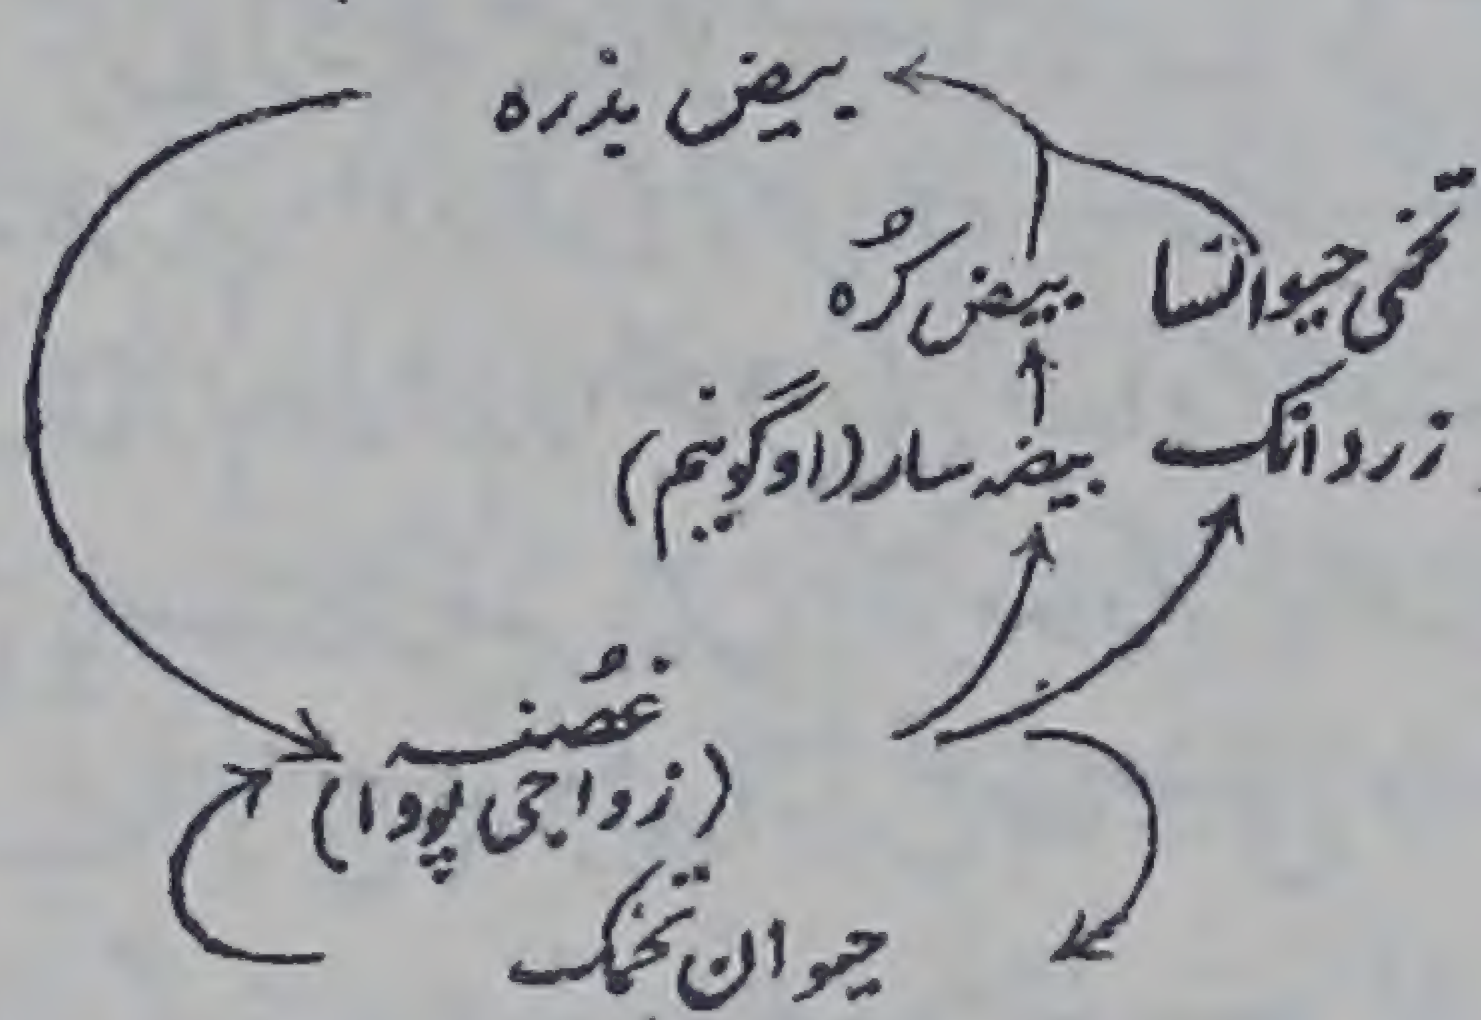 بیض بذرہ
تخمی حیوانسا بیض کُرہ
زردانک بیضہ سار (اوگونیم)
غُصنیہ
(زواجی پودا)
حیوان تخمک